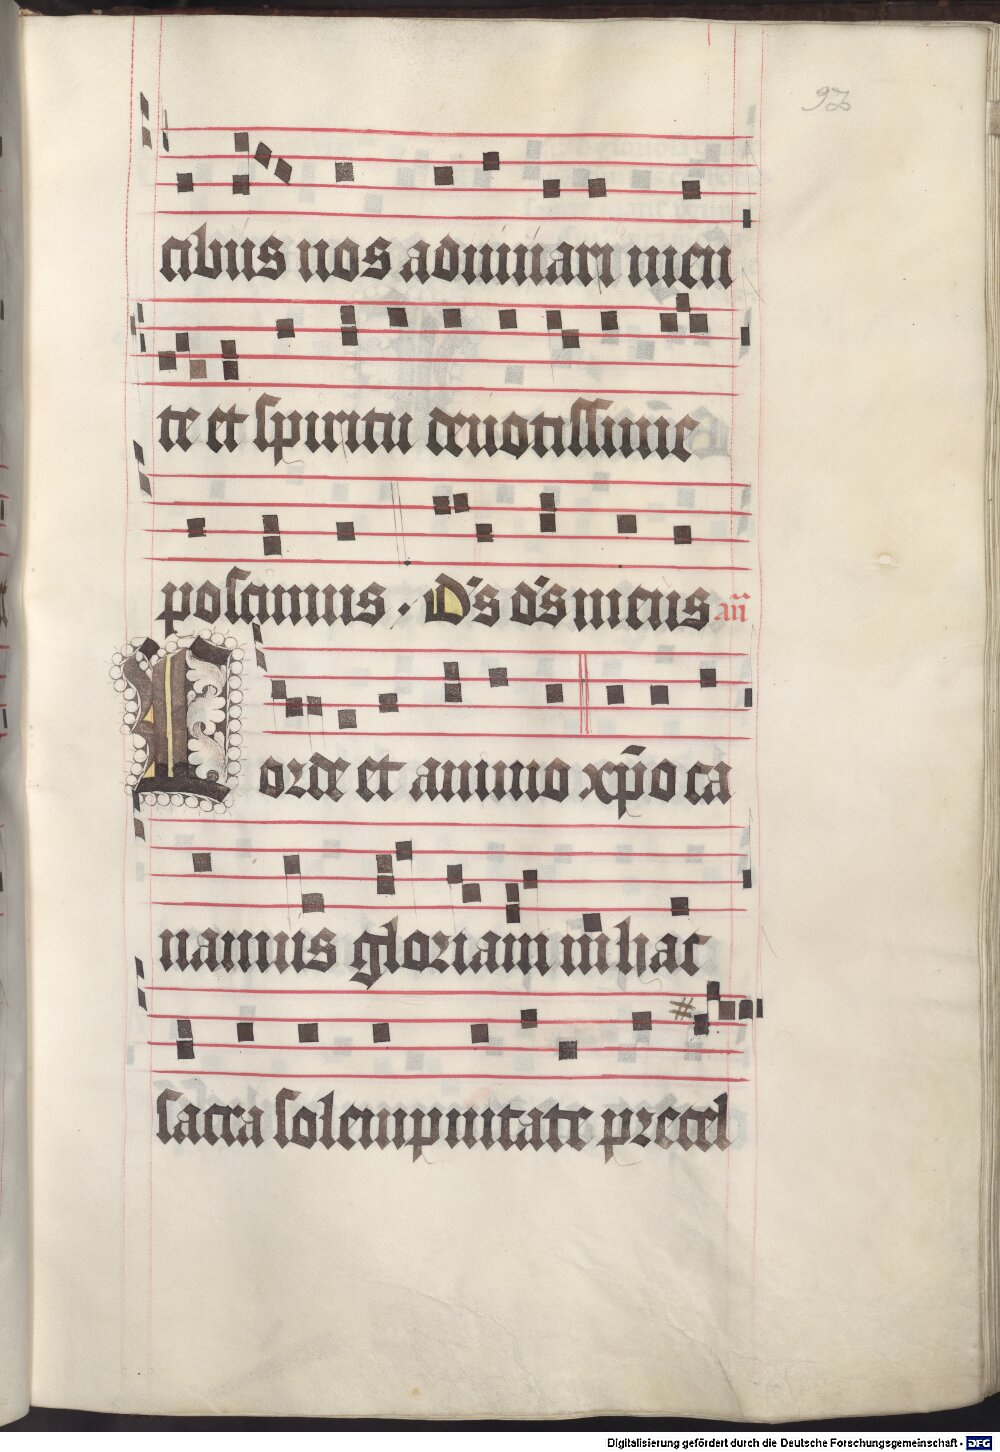 92
cibus nos adiuuari men
te et spiritu deuotissime
poscimus . Ds ds meus an̄
Corde et animo xp̄o ca
namus gloriam in hac
sacra solempnitate precel
Digitalisierung gefördert durch die Deutsche Forschungsgemeinschaft - DFG